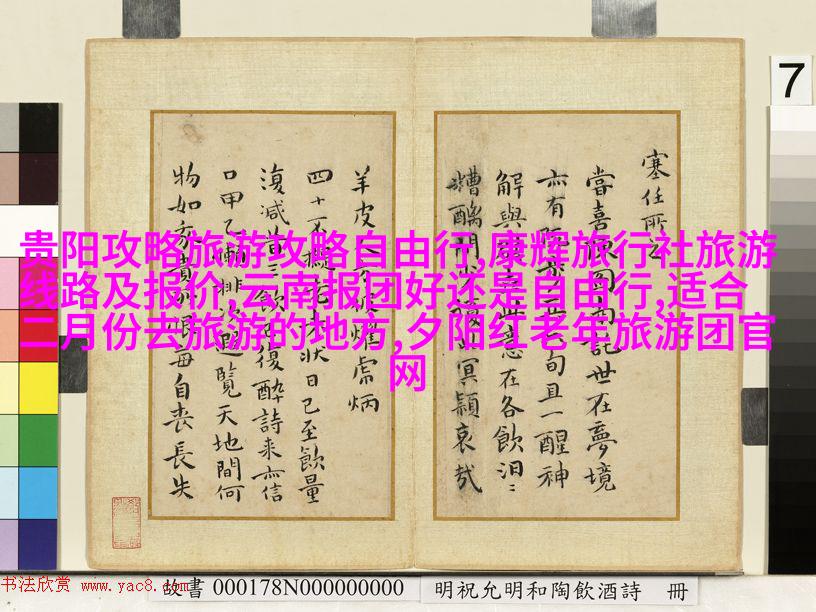 7
塞任所之
當喜陳圖南世在夢境
亦有句且一醒神
解與意在各飲汩〻
糟醨冥穎哀哉
羊皮燿虎炳
四十不狀日已至飲量
復减昔三飲復酔詩来亦信
口甲乙遊覽天地間何
物如每自丧長失
贵阳攻略旅游攻略自由行,康辉旅行社旅游
线路及报价,云南报团好还是自由行,适合
二月份去旅游的地方,夕阳红老年旅游团官
网
书法欣赏 www.yac8.com
故書 000178N000000000
明祝允明和陶飲酒詩 冊